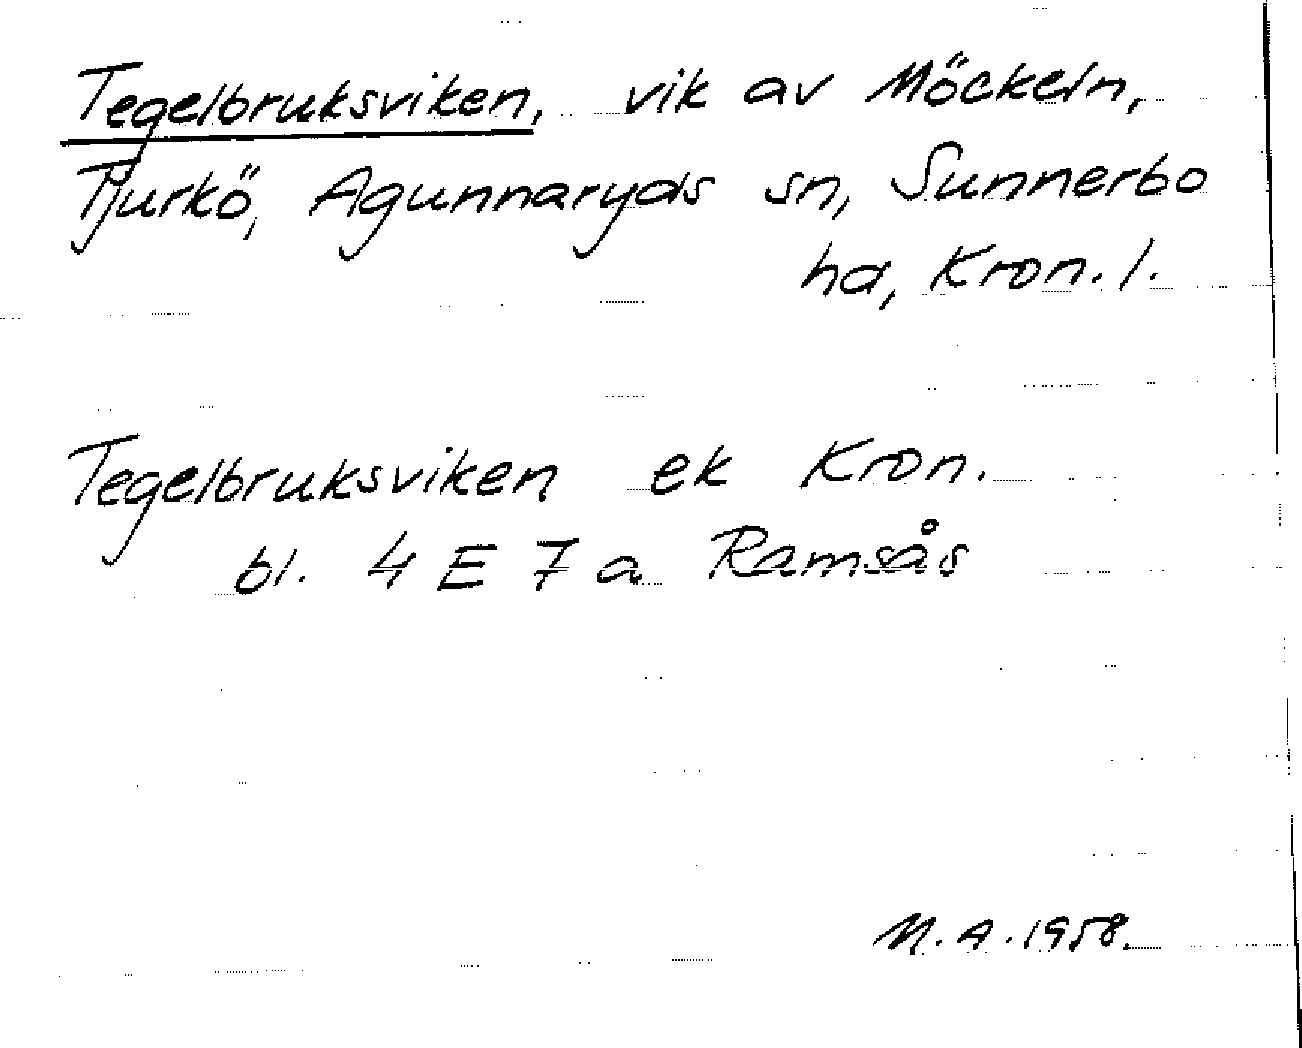 Tegelbruksviken, vik av Möckeln,
Tjurkö, Agunnaryds sn, Sunnerbo
hd, Kron. l.
Tegelbruksviken ek Kron.
bl. 4 E 7 a Ramsås
M.A. 1958.